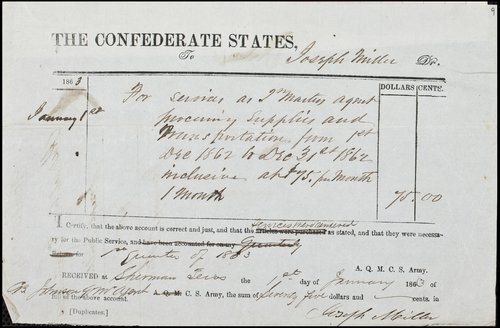 9
THE CONFEDERATE STATES,
To Joseph Miller Dr.
1863
DOLLARS CENTS.
January 1st
For services as Qr Master agent
procuring supplies and
Transportation from 1st
Dec 1862 to Dec 31st 1862
inclusive at $75. per Month
1 Month
75.00
services were rendered
I CERTIFY, that the above account is correct and just, and that the articles were purchased as stated, and that they were necessary for the Public Service, and have been accounted for on my Quarterly
for 1st quarter of 1863
A. Q. M. C. S. Army.
RECEIVED at Sherman Texas the 1st day of January 1863 of
A. Q. M. C. S. Army, the sum of Seventy five dollars and cents, in
full of the above account.
[Duplicates.]
Joseph Miller